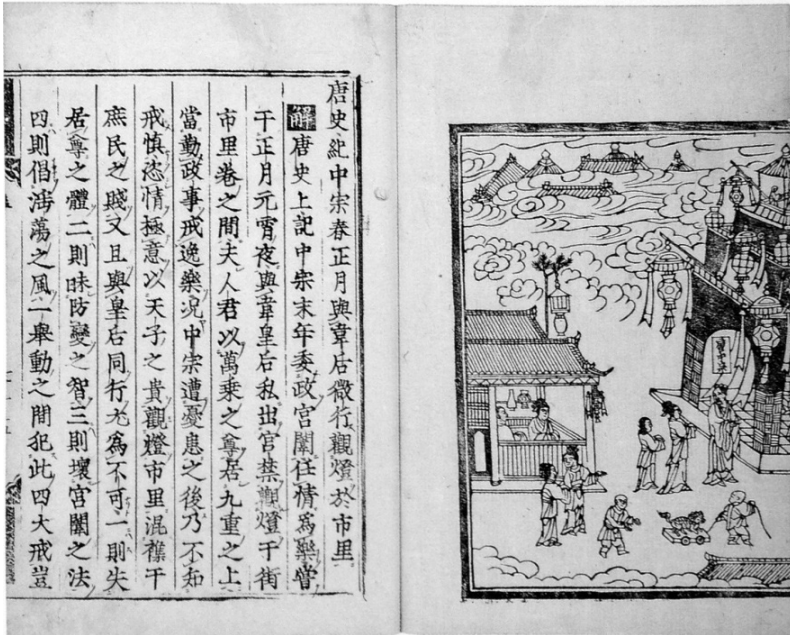 唐史紀中宗春正月與韋后微行觀燈於市里
解唐史上記中宗末年委政宫闈任情為樂嘗
于正月元宵夜與韋皇后私出宫禁觀燈于街
市里巷之間夫人君以萬乘之尊居九重之上
當勤政事戒逸樂况中宗遭憂患之後乃不知
戒慎恣情極意以天子之貴觀燈市里混襍于
庶民之賤又且與皇后同行尤為不可一則失
居尊之體二則昧防變之智三則壞宫闈之法
四則倡淫蕩之風一舉動之間犯此四大戒豈